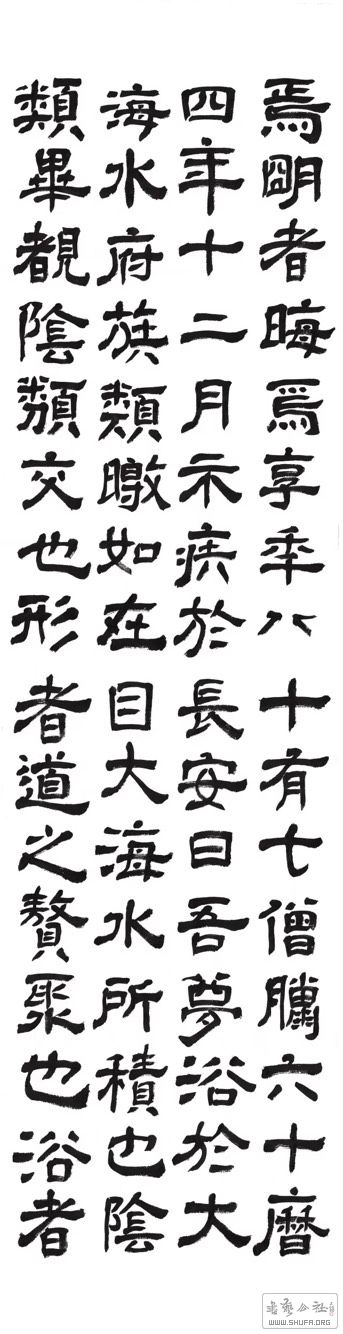 焉明者晦焉享年八十有七僧臘六十曆
四年十二月示疾於長安曰吾夢浴於大
海水府蔟類暾如在目大海水所積也陰
類畢覩陰類交也形者道之贅聚也浴者
WWW.SHUFA.ORG